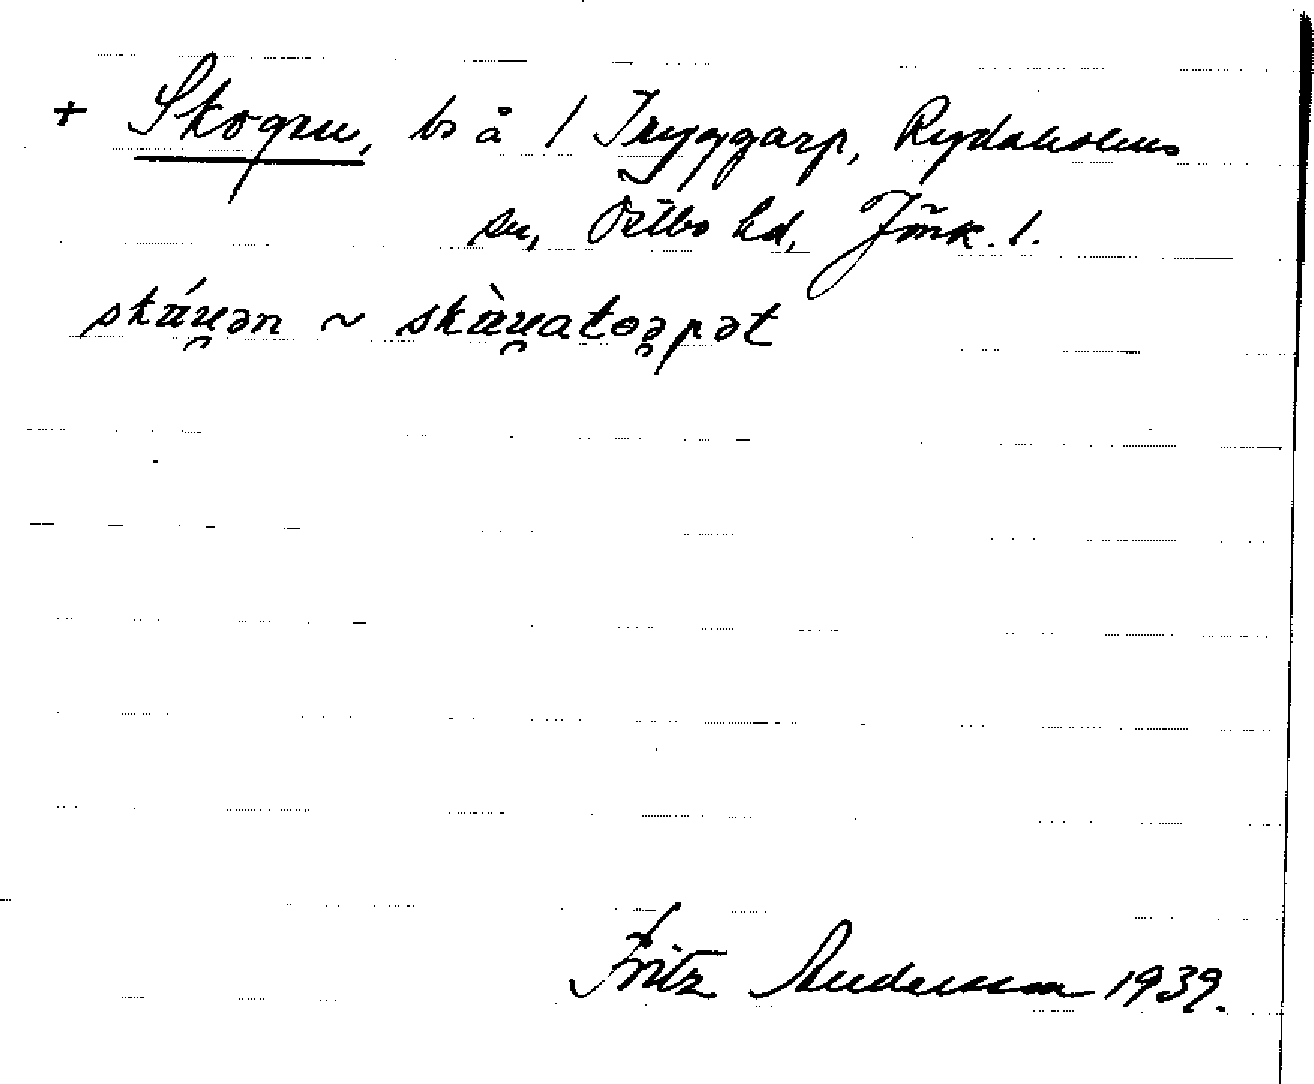 + Skogen, bs å 1 Tryggarp, Rydaholms
sn, Östbo hd, Jönk. l.
skáu̯ən ~ skàu̯atoə̯pət
Fritz Andersson 1939.